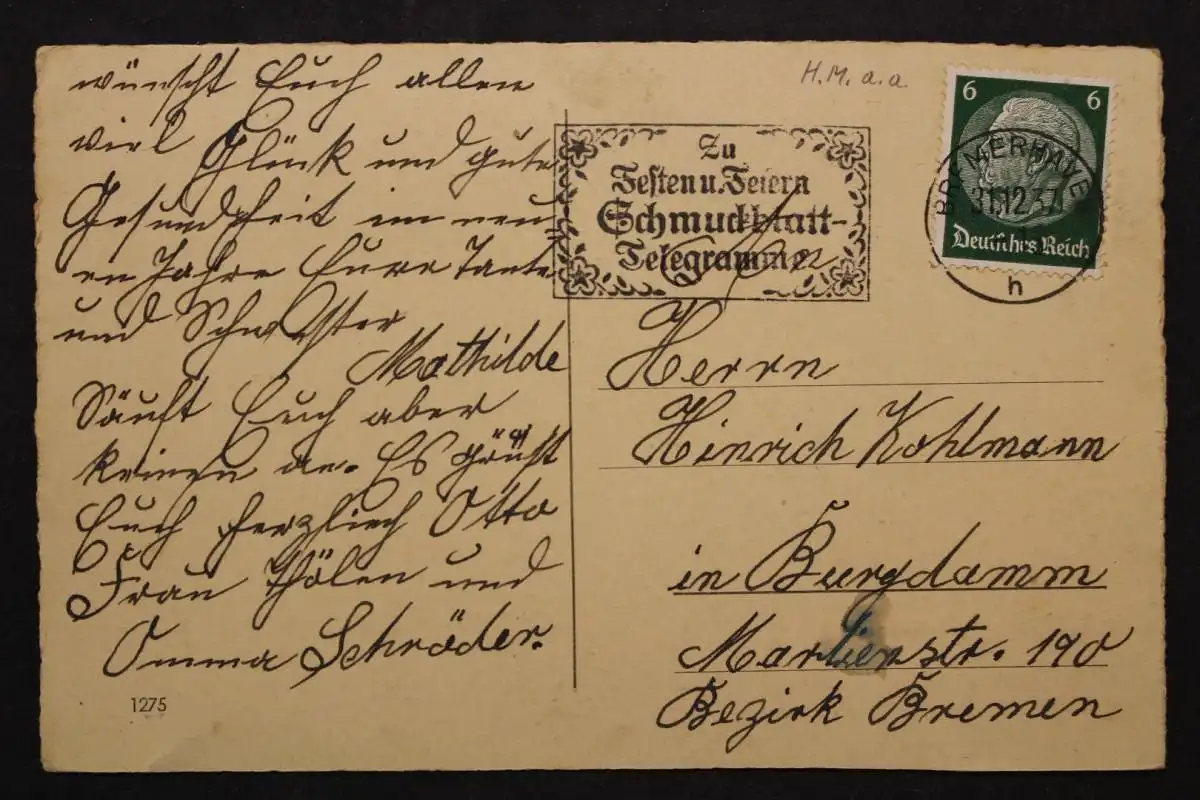 wünscht Euch allen
viel Glück und gute
Gesundheit im neu-
en Jahre Eure Tante
und Schwester
Mathilde
Säuft Euch aber
keinen an. Es grüßt
Euch herzlich Otto
Frau Thölen und
Omma Schröder.
1275
H.M. a. a.
Zu
Festen u. Feiern
Schmuckblatt-
Telegramme
6 6
Deutsches Reich
BREMERHAVEN
31.12.37
h
Herrn
Hinrich Kohlmann
in Burgdamm
str. 190
Bezirk Bremen